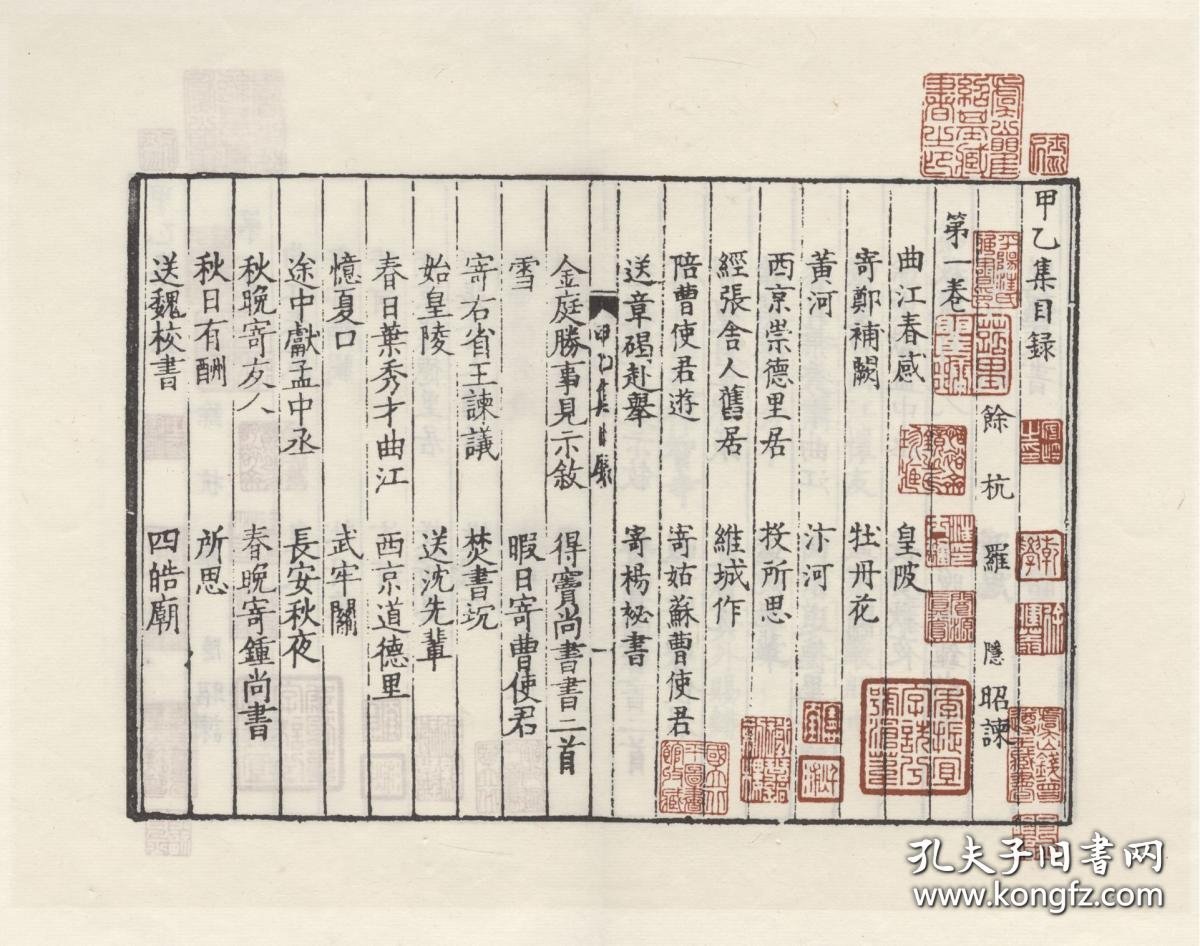 甲乙集目録
餘杭 羅隱 昭諫
第一卷
曲江春感 皇陂
寄鄭補闕 牡丹花
黃河 汴河
西京崇德里居 投所思
經張舍人舊居 維城作
陪曹使君遊 寄姑蘇曹使君
送章碣赴舉 寄楊祕書
甲乙集目録 一
金庭勝事見示敘 得竇尚書書二首
雪 暇日寄曹使君
寄右省王諫議 焚書坑
始皇陵 送沈先輩
春日葉秀才曲江 西京道德里
憶夏口 武牢關
途中獻孟中丞 長安秋夜
秋晚寄友人 春晚寄鍾尚書
秋日有酬 所思
送魏校書 四皓廟
孔夫子旧书网
www.kongfz.com